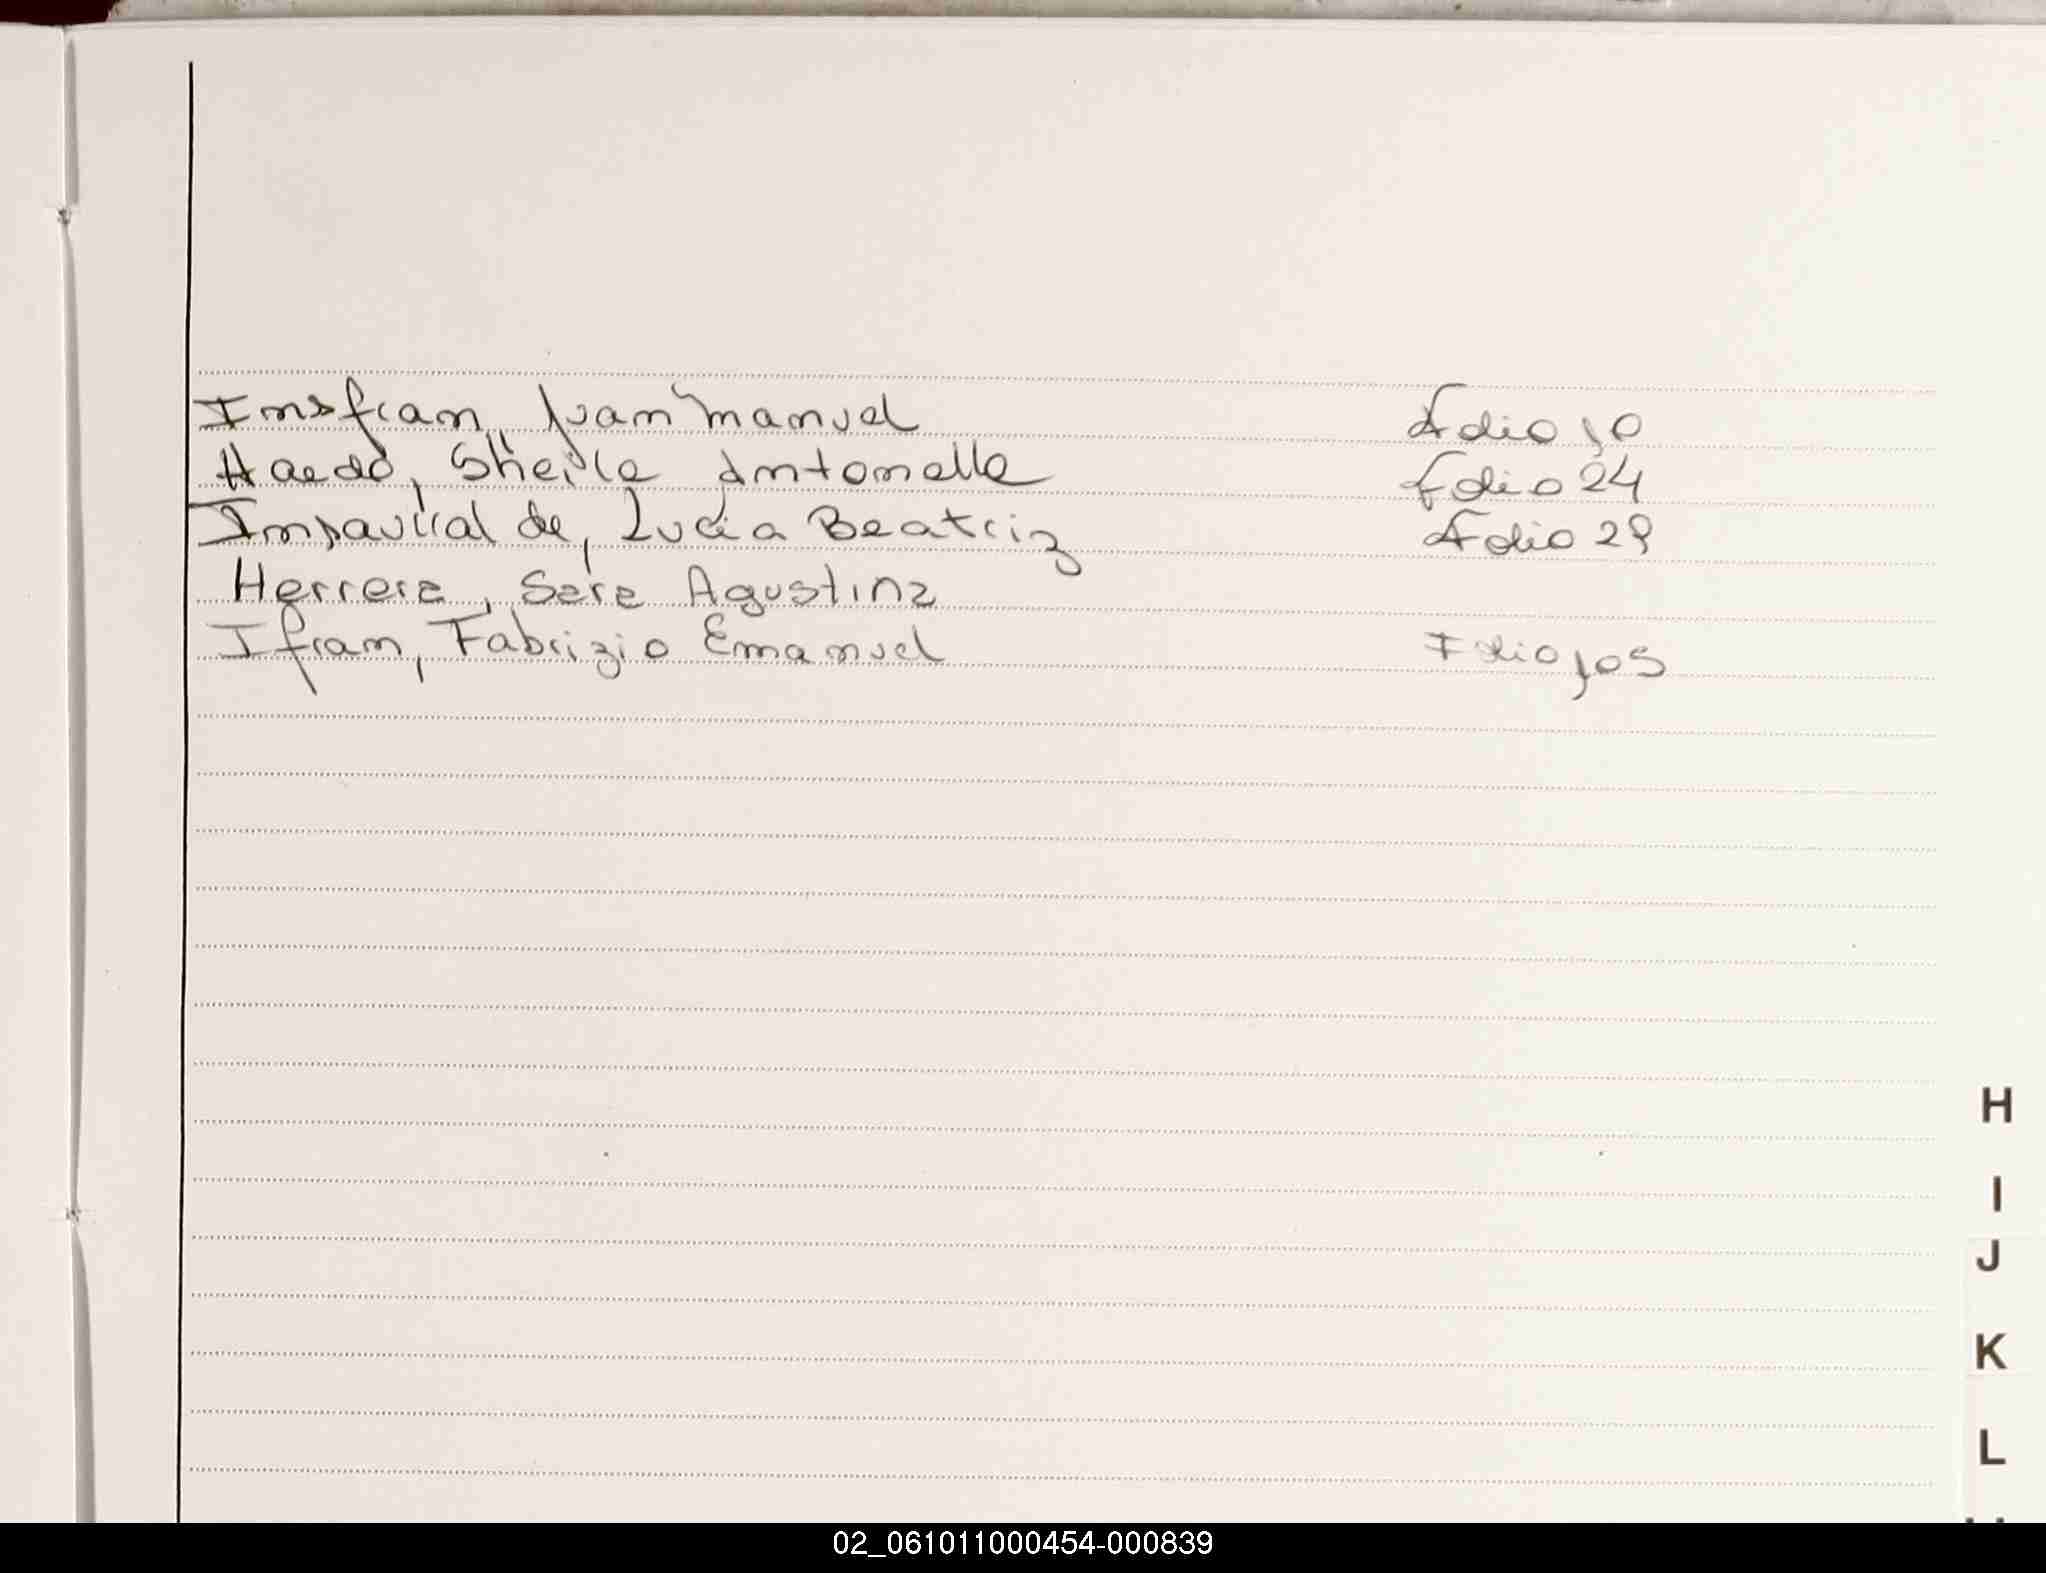 Insfran, Juan Manuel Folio 10
Haedo, Sheila Antonella Folio 24
Insaurral de, Lucia Beatriz Folio 28
Herrera, Sara Agustina
Ifran, Fabrizio Emanuel Folio 105
H
I
J
K
L
02_061011000454-000839